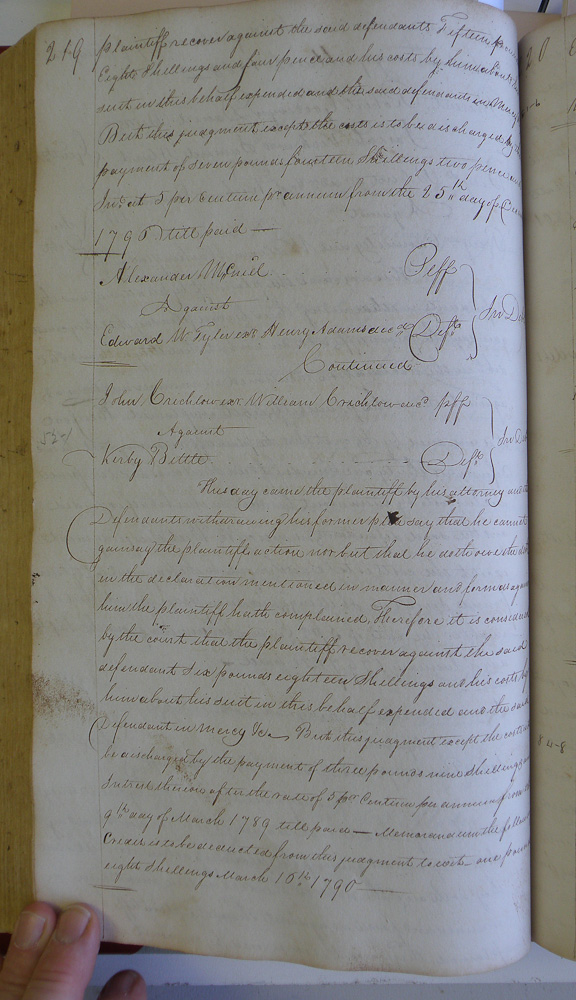 219
plaintiff recover against the said defendants Fifteen
Eight Shillings and four pence and his costs by him about
suit in this behalf expended and the said defendants in mercy
But this judgment except the costs is to be discharged by the
payment of seven pounds fourteen Shillings two pence and
Int. at 5 per Centum pr annum from the 25th day of
1796 till paid —
Alexander McNiel Plff
Against
Edward W. Tyler exr Henry Adams decd Deft
In De
Continued
John Crichlow exr William Crichlow decd plff
Against
Kerby Bittle Deft
In De
This day came the plaintiff by his attorney and the
Defendants withdrawing his former plea say that he cannot
gainsay the plaintiff action nor but that he doth owe the debt
in the declaration mentioned in manner and form as against
him the plaintiff hath complained Therefore it is considered
by the court that the plaintiff recover against the said
defendant Six pounds eighteen Shillings and his costs by
him about his suit in this behalf expended and the said
Defendant in mercy &c But this judgment except the costs
be discharged by the payment of three pounds nine Shillings
Interest thereon after the rate of 5 per Centum per annum from the
9th day of March 1789 till paid — Memorandum the follow
Credit is to be deducted from this judgment to wit one pound
eight Shillings March 10th 1790